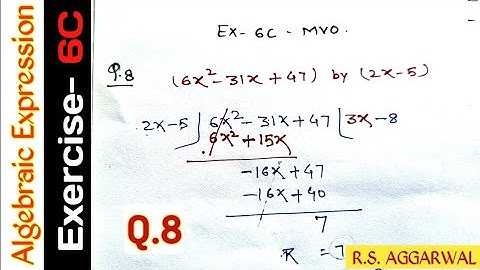 Algebraic Expression
Exercise- 6C
Ex- 6C - MVO.
Q.8
(6x² - 31x + 47) by (2x-5)
2x-5 ) 6x² - 31x + 47 ( 3x - 8
6x² + 15x
-16x + 47
-16x + 40
7
R = 7
Q.8
R.S. AGGARWAL